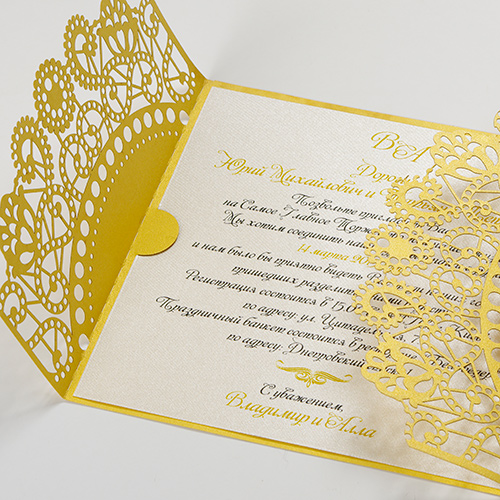 В А
Дорог
Юрий Михайлович и
Позвольте пригласить Вас
на Самое Главное Торж
Мы хотим соединить наш
14 марта
и нам было бы приятно видеть
пришедших разделить
Регистрация состоится в 15.0
по адресу: ул. Цитадел
Праздничный банкет состоится в рес
по адресу: Днепровский
С уважением,
Владимир и Алла